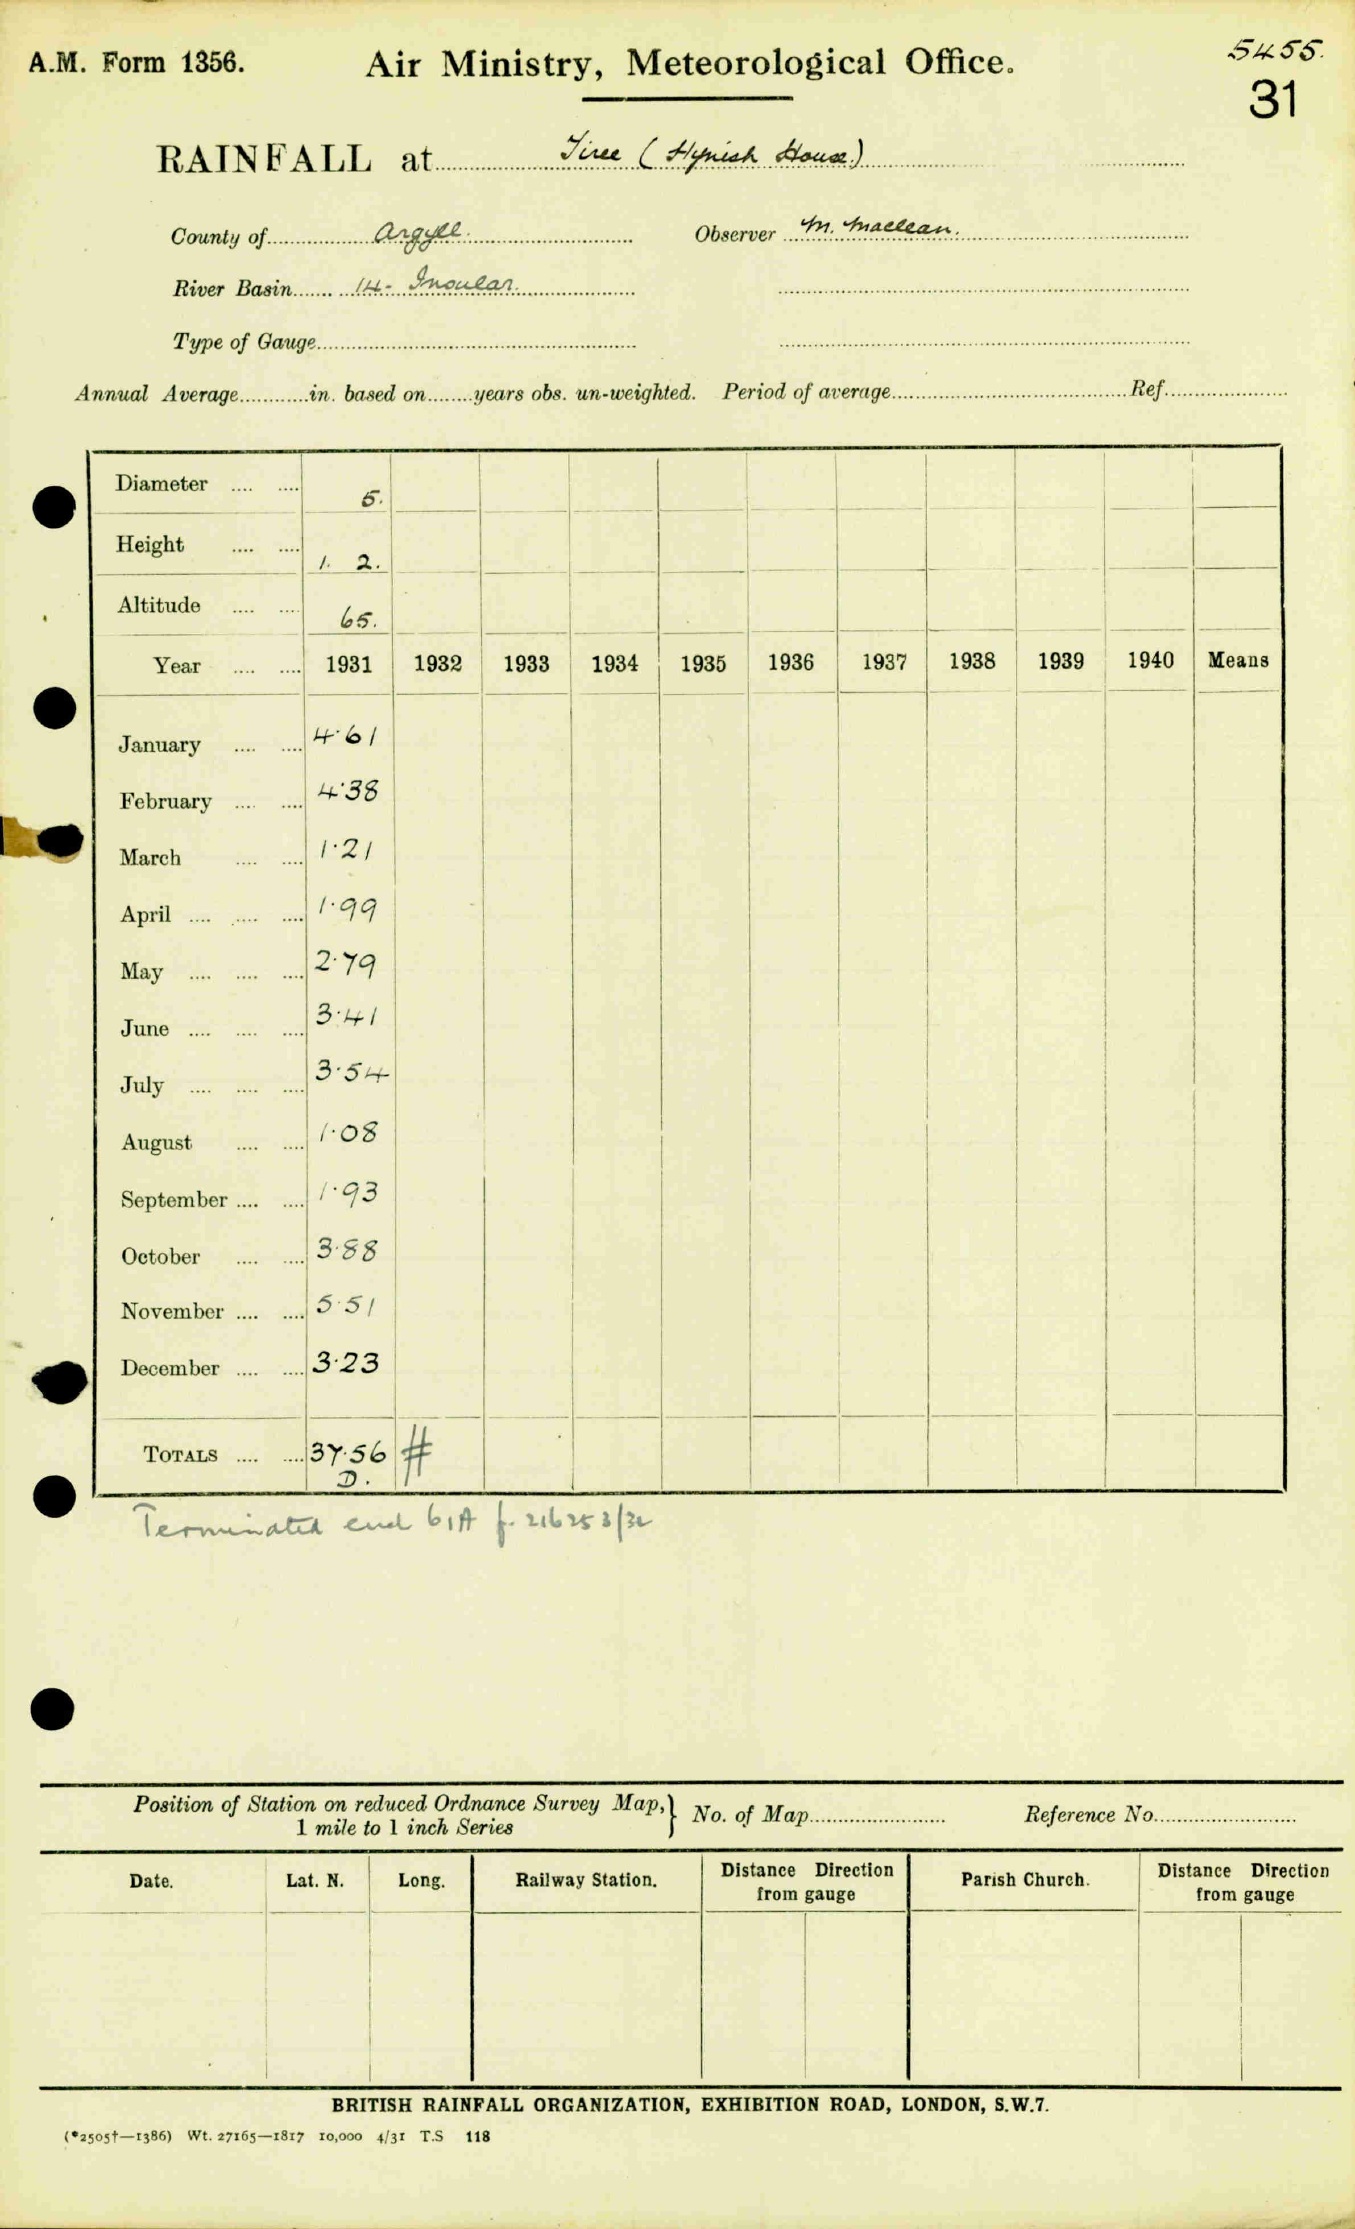 A.M. Form 1356.
Air Ministry, Meteorological Office.
5455.
31
RAINFALL at Tiree (Hynish House)
County of Argyll. Observer M. Maclean.
River Basin 14- Insular.
Type of Gauge
Annual Average in. based on years obs. un-weighted. Period of average Ref.
Diameter 5.
Height 1. 2.
Altitude 65.
Year 1931 1932 1933 1934 1935 1936 1937 1938 1939 1940 Means
January 4·61
February 4·38
March 1·21
April 1·99
May 2·79
June 3·41
July 3·54
August 1·08
September 1·93
October 3·88
November 5·51
December 3·23
TOTALS 37·56 #
D.
Terminated end
Position of Station on reduced Ordnance Survey Map, } No. of Map Reference No.
1 mile to 1 inch Series
Date. Lat. N. Long. Railway Station. Distance Direction from gauge Parish Church. Distance Direction from gauge
BRITISH RAINFALL ORGANIZATION, EXHIBITION ROAD, LONDON, S.W.7.
(*2505†—1386) Wt. 27165—1817 10,000 4/31 T.S 118